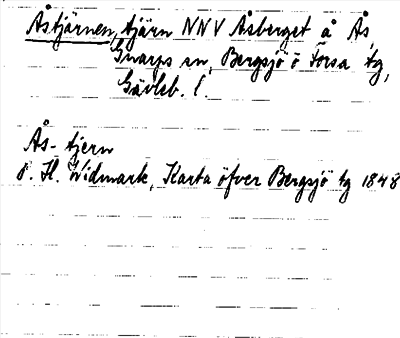 Åstjärnen, tjärn NNV Åsberget å Ås,
Gnarps sn, Bergsjö o Forsa tg,
Gävleb. l.
Ås-tjern
P. H. Widmark, Karta öfver Bergsjö tg 1848